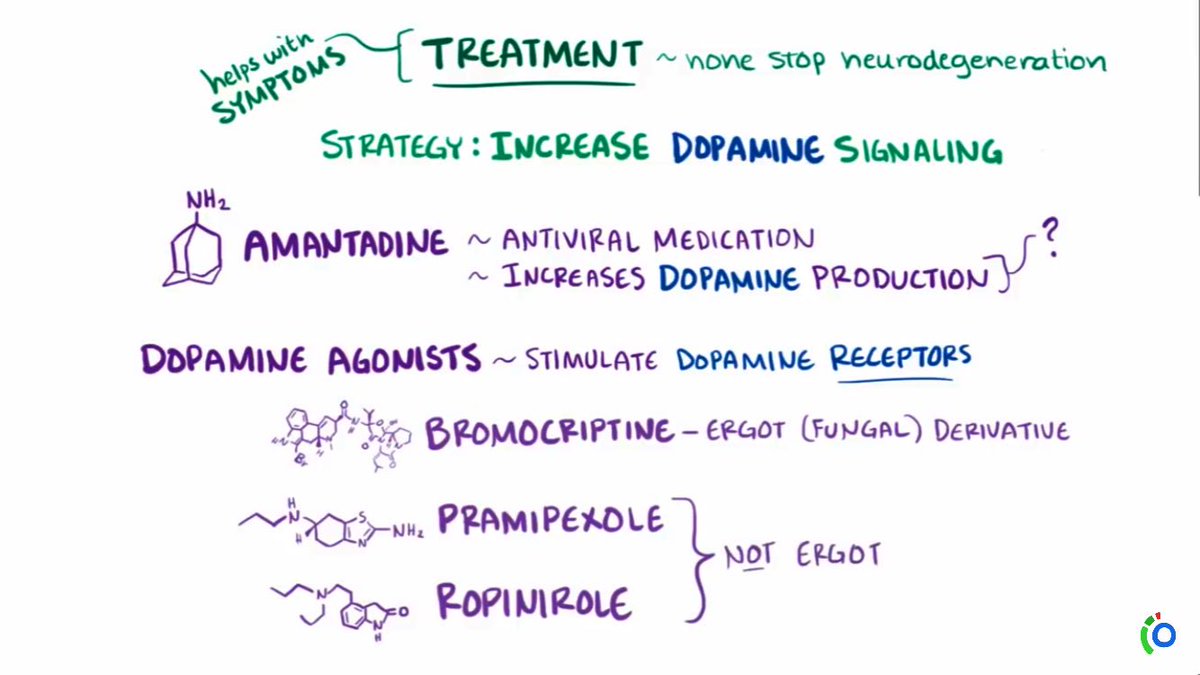 helps with
SYMPTOMS
TREATMENT ~ none stop neurodegeneration
STRATEGY: INCREASE DOPAMINE SIGNALING
NH2
AMANTADINE ~ ANTIVIRAL MEDICATION
~ INCREASES DOPAMINE PRODUCTION
?
DOPAMINE AGONISTS ~ STIMULATE DOPAMINE RECEPTORS
BROMOCRIPTINE – ERGOT (FUNGAL) DERIVATIVE
H
N
H
S
N
NH2
PRAMIPEXOLE
NOT ERGOT
N
O
N
H
ROPINIROLE